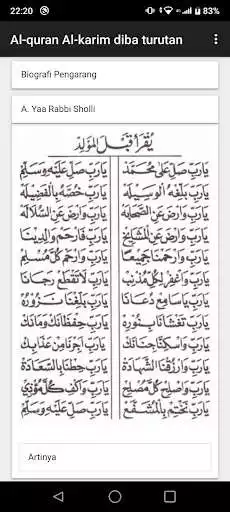 22:20
83%
Al-quran Al-karim diba turutan
Biografi Pengarang
A. Yaa Rabbi Sholli
يُقْرَأُ قَبْلَ الْمَوْلِدْ
يَارَبِّ صَلِّ عَلَى مُحَمَّدْ يَارَبِّ صَلِّ عَلَيْهِ وَسَلِّمْ
يَارَبِّ بَلِّغْهُ الْوَسِيْلَهْ يَارَبِّ خُصَّهْ بِالْفَضِيْلَهْ
يَارَبِّ وَارْضَ عَنِ الصَّحَابَهْ يَارَبِّ وَارْضَ عَنِ السُّلَالَهْ
يَارَبِّ وَارْضَ عَنِ الْمَشَايِخْ يَارَبِّ فَارْحَمْ وَالِدِيْنَا
يَارَبِّ وَارْحَمْنَا جَمِيْعًا يَارَبِّ وَارْحَمْ كُلَّ مُسْلِمْ
يَارَبِّ وَاغْفِرْ لِكُلِّ مُذْنِبْ يَارَبِّ لَا تَقْطَعْ رَجَانَا
يَارَبِّ يَاسَامِعْ دُعَانَا يَارَبِّ بَلِّغْنَا نَزُوْرُهْ
يَارَبِّ تَغْشَانَا بِنُوْرِهْ يَارَبِّ حِفْظَانَكْ وَامَانَكْ
يَارَبِّ وَاسْكِنَّا جِنَانَكْ يَارَبِّ اَجِرْنَا مِنْ عَذَابِكْ
يَارَبِّ وَارْزُقْنَا الشَّهَادَهْ يَارَبِّ حِطْنَا بِالسَّعَادَهْ
يَارَبِّ وَاصْلِحْ كُلَّ مُصْلِحْ يَارَبِّ وَاكْفِ كُلَّ مُؤْذِيْ
يَارَبِّ نَخْتِمْ بِالْمُشَفَّعْ يَارَبِّ صَلِّ عَلَيْهِ وَسَلِّمْ
Artinya